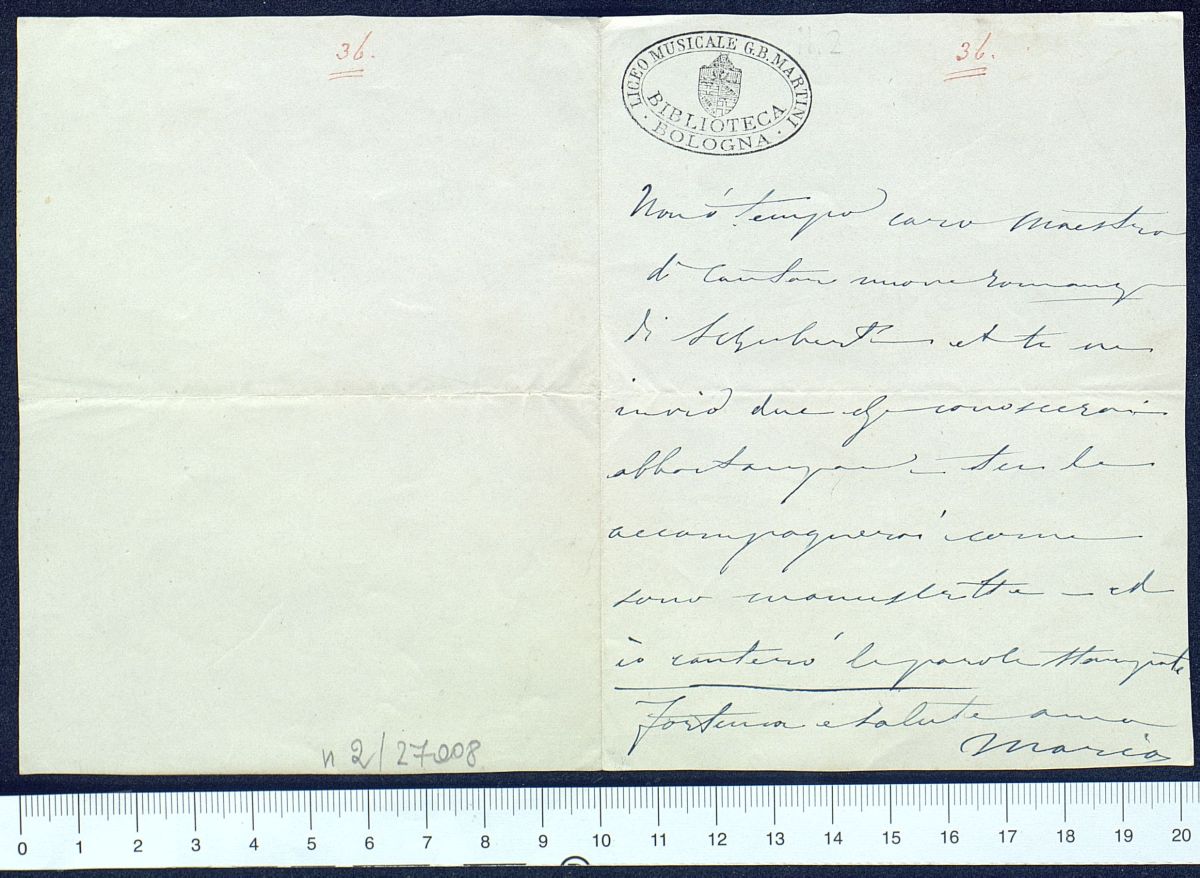 36.
n 2/27008
36.
11.2
LICEO MUSICALE G.B. MARTINI
BIBLIOTECA
· BOLOGNA ·
Non è tempo caro Maestro
di cantare nuove romanze
di Schubert e te ne
invio due che conoscerai
abbastanza tu le
accompagnerai come
sono manuscritte - ed
io canterò le parole stampate
Fortuna e salute
Mario
0 1 2 3 4 5 6 7 8 9 10 11 12 13 14 15 16 17 18 19 20